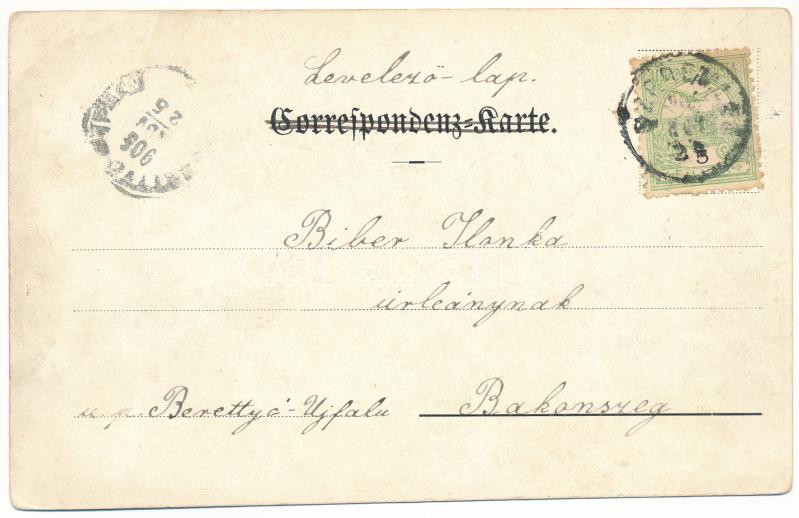 Levelező-lap.
Correspondenz-Karte.
Biber Ilonka
úrleánynak
u. p. Berettyó-Ujfalu
Bakonszeg
906
5